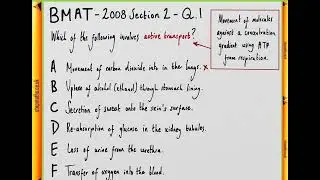 BMAT - 2008 Section 2 - Q.1
Which of the following involves active transport?
Movement of molecules
against a concentration
gradient using ATP
from respiration.
A Movement of carbon dioxide into in the lungs. x
B Uptake of alcohol (ethanol) though stomach lining.
C Secretion of sweat onto the skin's surface.
D Re-absorption of glucose in the kidney tubules.
E Loss of urine from the urethra.
F Transfer of oxygen into the blood.